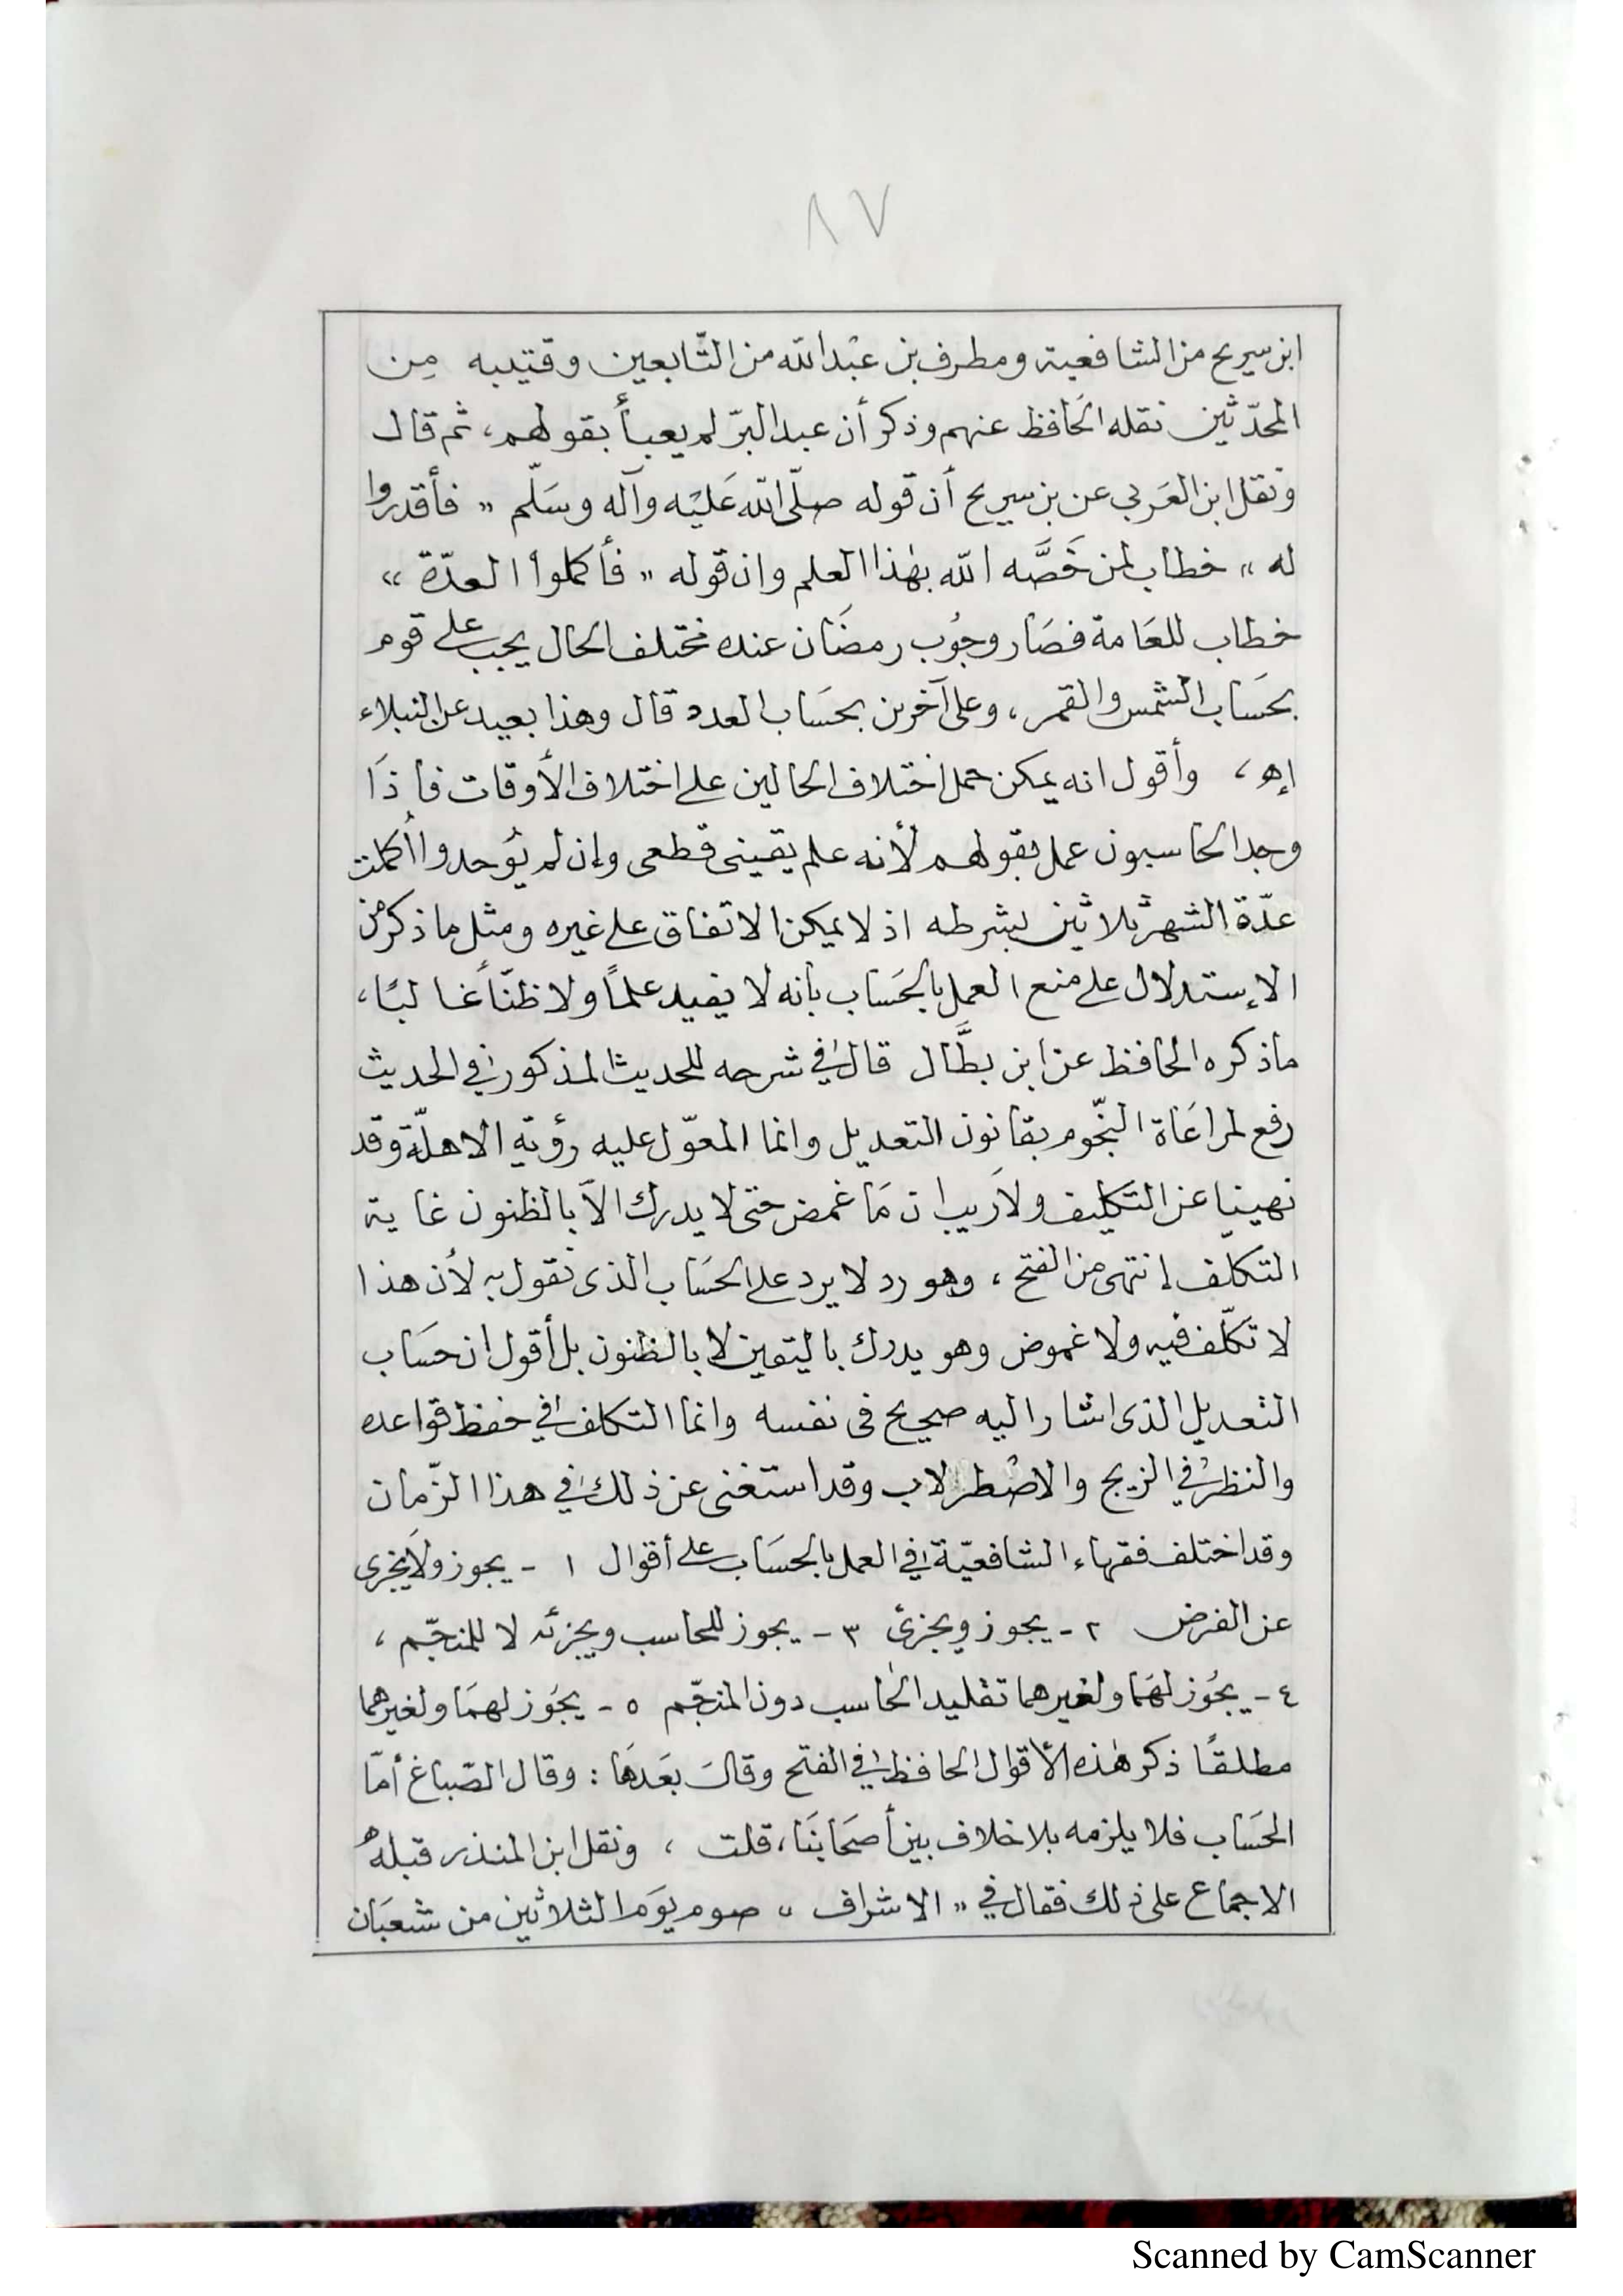 ٨٧
ابن سريج من الشافعية ومطرف بن عبْد الله من التّابعين وقتيبه مِن
المحدّثين نقله الحَافظ عنهم وذكر أن عبد البرّ لم يعبأ بقولهم، ثم قال
ونقل ابن العَربي عن بن سريج أن قوله صلّى الله عَليْه وآله وسَلّم „ فأقدروا
له “ خطاب لمن خَصَّه الله بهٰذا العلم وان قوله „ فأكملوا العدّة “
خطاب للعَامة فصَار وجُوب رمضَان عنده مختلف الحال يجب على قوم
بحَساب الشمس والقمر، وعلى آخرين بحَساب العدد قال وهذا بعيد عن النبلاء
إه، وأقول انه يمكن حمل اختلاف الحالين على اختلاف الأوقات فأذَا
وجد الحاسبون عمل بقولهم لأنه علم يقيني قطعى وإن لم يُوحدوا أكملت
عدّة الشهر ثلاثين بشرطه اذ لا يمكن الاتفاق على غيره ومثل ما ذكر من
الإستدلال على منع العمل بالحَساب بأنه لا يفيد علمًا ولا ظنًّا غالبًا،
ماذكره الحافظ عن ابن بطَّال قال في شرحه للحديث المذكور في الحديث
رفع لمراعَاة النجّوم بقانون التعديل وانما المعوّل عليه رؤية الاهلّة وقد
نهينا عن التكليف ولاَريب ان مَا غمض حتى لا يدرك الاّ بالظنون غاية
التكلّف إنتهى من الفتح، وهو رد لا يرد على الحسَاب الذى نقول به لأن هذا
لا تكلّف فيه ولا غموض وهو يدرك باليقين لا بالظنون بل أقول ان حسَاب
التعديل الذى اشار اليه صحيح فى نفسه وانما التكلف في حفظ قواعده
والنظر في الزيج والاصْطرلاب وقد استغنى عن ذلك في هذا الزّمان
وقد اختلف فقهاء الشافعيّة في العمل بالحسَاب على أقوال ١ - يجوز ولاَيجزى
عن الفرض ٢ - يجوز ويجزئ ٣ - يجوز للحاسب ويجزئه لا للمنجّم،
٤ - يجُوز لهمَا ولغيرهما تقليد الحَاسب دون المنجّم ٥ - يجَوز لهمَا ولغيرهما
مطلقًا ذكر هٰذه الأقوال الحافظ في الفتح وقالَ بعَدهَا : وقال الصّباغ أمّا
الحَساب فلا يلزمه بلا خلاف بين أصحَابنَا، قلت ، ونقل ابن المنذر قبلهُ
الاجماع على ذلك فقال في „ الاشراف “ صوم يوَم الثلاثين من شعبَان
Scanned by CamScanner